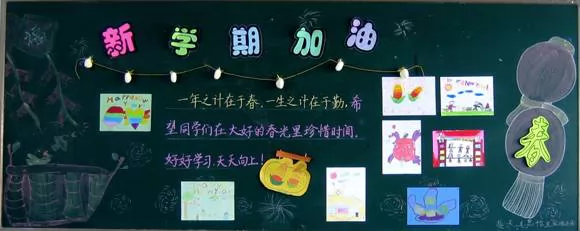 新学期加油
一年之计在于春，一生之计在于勤，希
望同学们在大好的春光里珍惜时间，
好好学习，天天向上！
春